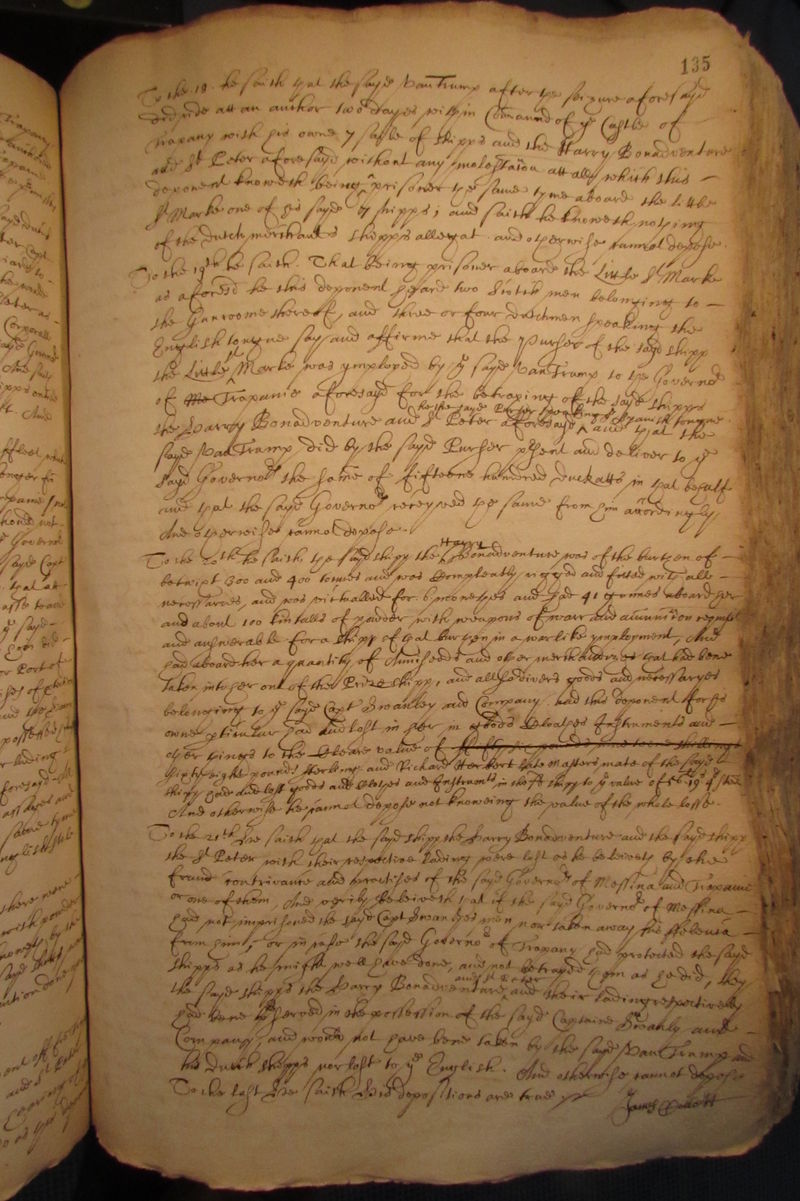 135
To the 18. he saith that the sayd Van Trump after the seizure aforesayd
did ride att an anchor two dayes within Command of ye Castle of
Trapany with his owne 7 sayle of shipps and the Harry Bonadventure
and St Peter aforesayd without any molestation att all, which this
deponent knoweth being prisoner the same tyme aboard the little
St Marke one of his sayd 7 shipps; and saith he knoweth nothing
of the dutch merchants shipps allegat. and otherwise cannot depose.
To the 19th he saith. That being prisoner aboard the Little St Marke
as aforesd he this deponent heard two men belonging to
the Gunroome thereof, and three or four dutchmen speaking the
English tongue say and affirme that the Purser of the sayd shipp
the Little St Marke was ymployed by ye sayd Van Trump to the Governor
of Trapanie aforesayd for the betraying of the sayd shipps
the Harry Bonadventure and St Peter aforesayd and that the
he the sayd Purser speaking ye Spanish tongue
sayd Van Trump did by the sayd Purser present and deliver to ye
sayd Governor the some of fifteene hundred duckatts in that behalfe
and that the sayd Governor receyved the same from him accordingly
And otherwise cannot depose.
To the 20th he saith the sayd shipp the Harry Bonadventure was of the burthen of
betwixt 300 and 400 tonnes and was compleatly rigged and fitted with all
necessaries, and was victualled for 6 monethes and had 41 gunnes aboard her
and about 100 kintalls of powder with weapons of warr and amunition
and answerable for a shipp of that burthen in a warlike ymployment, And
had aboard her a quantity of and other merchandizes that had bene
taken into her out of the Prize shipp, and all had divers goods and necessaryes
belonging to ye sayd Capt Swanley and Company, had this deponent for his
owne pticular had and lost in her in goods Cloathes Instruments and
other things to the cleare value of
Fifty eight pounds sterling and Richard Herbert late Masters mate of the sayd
shipp had and lost goods and Clothes and Instruments in the sd shipp to ye value of
And otherwise he cannot depose not knoweing the value of the whole losse.
To the 21th hee saith that the sayd shipp the Harry Bonadventure and the sayd shipp
the St Peter with their respective lading were lost as he beleiveth by the
fraud contrivance and practises of the sayd Governors of Messina and Trapanie
or one of them, And verily beleiveth that if the sayd Governor of Messina
had not imprisoned the sayd Capt Swanleys men nor taken away his
from him, or in case the sayd Governor of Trapany had protected the sayd
shipps as he might well have done, and not betrayed them as he did, they
the sayd shipps the Harry Bonadventure and St Peter and their lading respectively
had bene preserved in the possession of the sayd Captaine Swanly and
Company, and would not have bene taken by the sayd Van Trump and
his Dutch shipps nor lost to ye English. And otherwise cannot depose
To the last hee saith his depositions are true
James